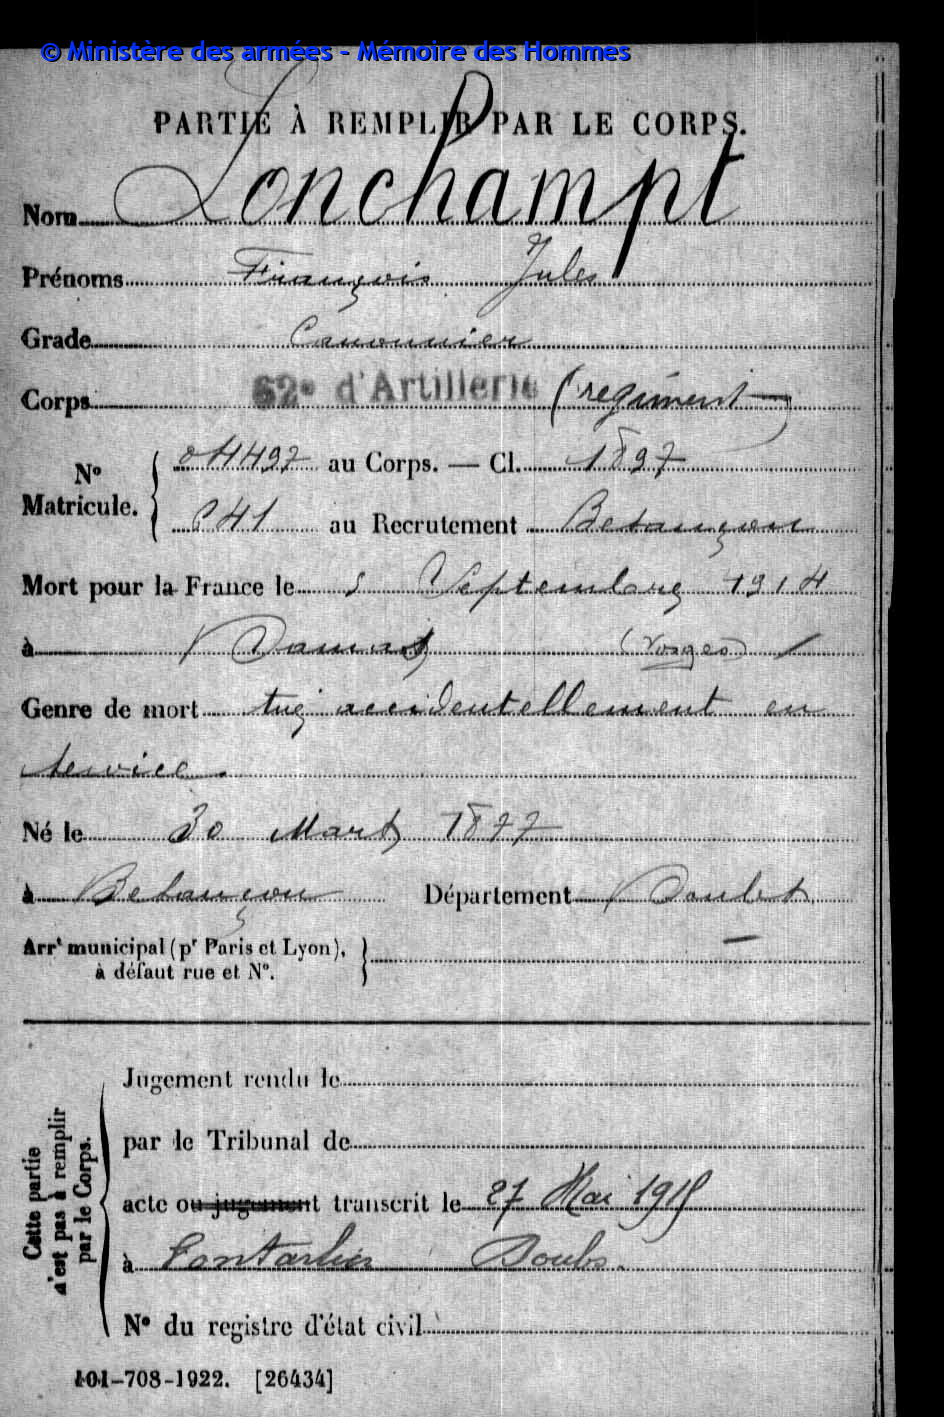 © Ministère des armées - Mémoire des Hommes
PARTIE À REMPLIR PAR LE CORPS.
Nom Lonchampt
Prénoms François Jules
Grade Canonnier
Corps 62e d'Artillerie (régiment)
N° Matricule. 04497 au Corps. — Cl. 1897
841 au Recrutement Besançon
Mort pour la France le 5 Septembre 1914
à Damas (Vosges)
Genre de mort tué accidentellement en
service.
Né le 30 Mars 1877
à Besançon Département Doubs
Arrt municipal (pr Paris et Lyon), —
à défaut rue et N°.
Cette partie n'est pas à remplir par le Corps.
Jugement rendu le
par le Tribunal de
acte ou jugement transcrit le 27 Mai 1915
à Pontarlier Doubs.
N° du registre d'état civil
101-708-1922. [26434]